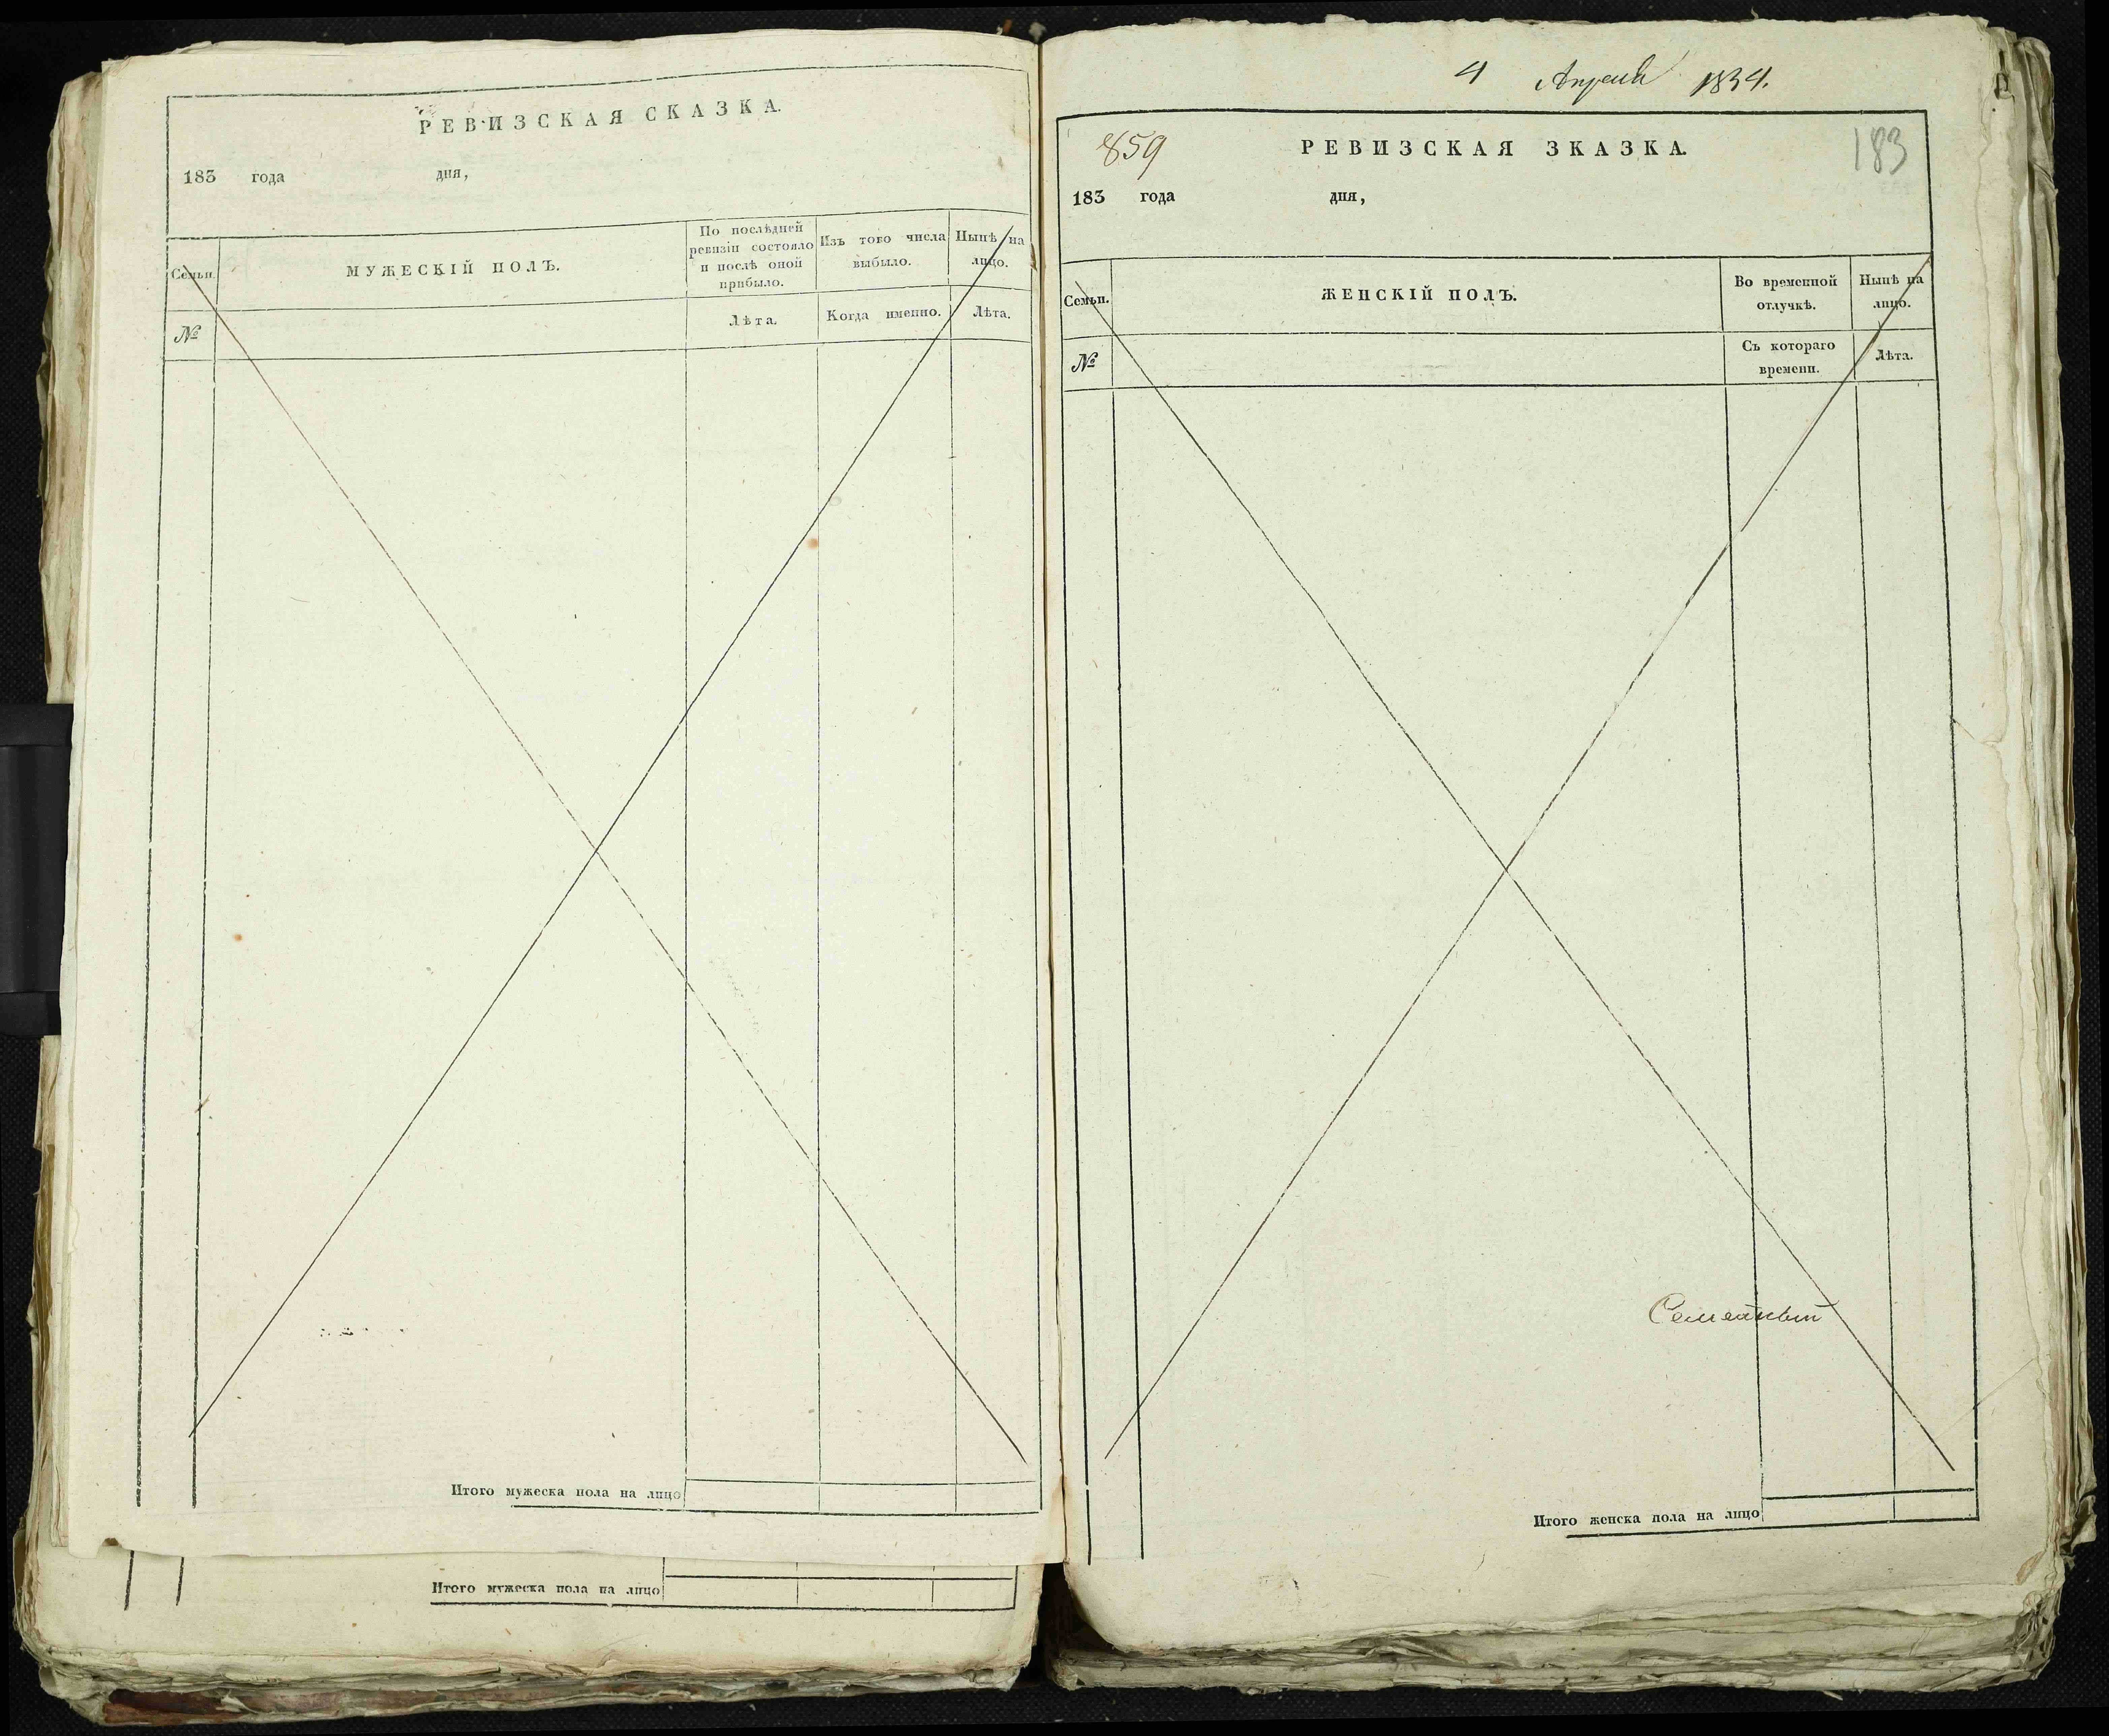 РЕВИЗСКАЯ СКАЗКА.
183 года дня,
Семьи.
№
МУЖЕСКІЙ ПОЛЪ.
По послѣдней
ревизіи состояло
и послѣ оной
прибыло.
Лѣта.
Изъ того числа
выбыло.
Когда именно.
Нынѣ на
лицо.
Лѣта.
Итого мужеска пола на лицо
Итого мужеска пола на лицо
4 Апреля 1834.
859
РЕВИЗСКАЯ ЗКАЗКА.
183
183 года дня,
Семьи.
№
ЖЕНСКІЙ ПОЛЪ.
Во временной
отлучкѣ.
Съ котораго
времени.
Нынѣ на
лицо.
Лѣта.
Итого женска пола на лицо